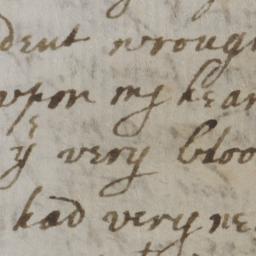 dent wrough
upon my hear
yͤ very bloo
had very ne